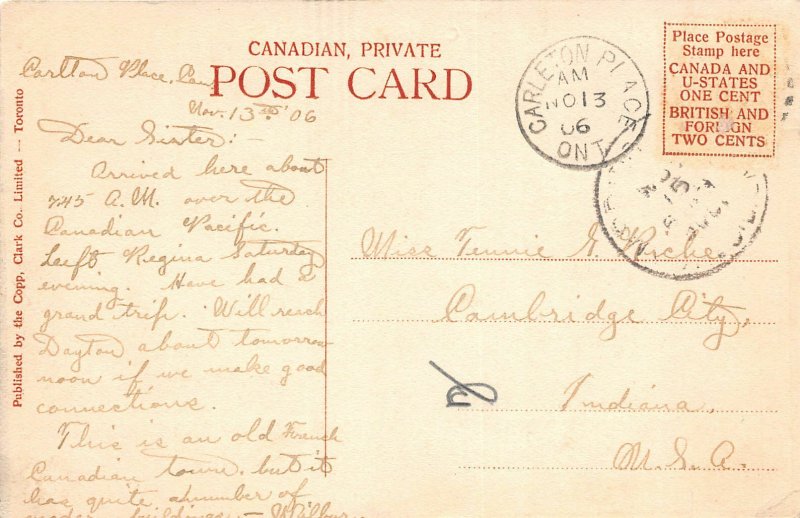 CANADIAN, PRIVATE
POST CARD
Carlton Place, Can
Nov. 13th '06
Dear Sister:-
Arrived here about
745 A.M. over the
Canadian Pacific.
Left Regina Saturday
evening. Have had a
grand trip. Will reach
Dayton about tomorrow
noon if we make good
connections.
This is an old French
Canadian town, but it
has quite a number of
buildings. - Wilbur
Published by the Copp, Clark Co., Limited — Toronto
CARLETON PLACE
AM
NO 13
06
ONT
Place Postage
Stamp here
CANADA AND
U-STATES
ONE CENT
BRITISH AND
FOREIGN
TWO CENTS
Miss Tennie G.
Cambridge City,
Indiana,
U.S.A.